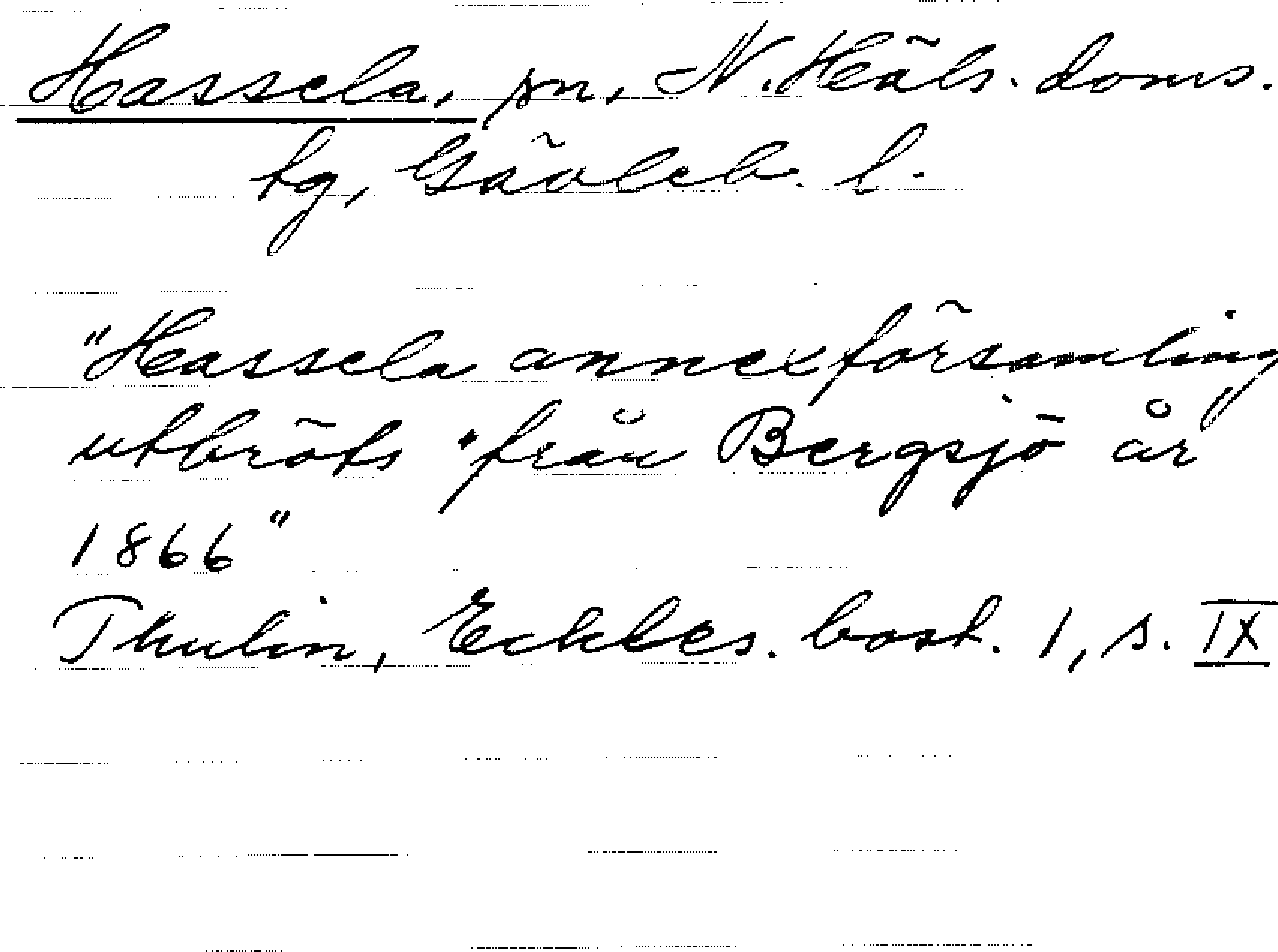 Hassela, sn, N. Häls. doms.
tg, Gävleb. l.
"Hassela annexförsamling
utbröts "från Bergsjö år
1866"
Thulin, Eckles. bost. 1, s. IX